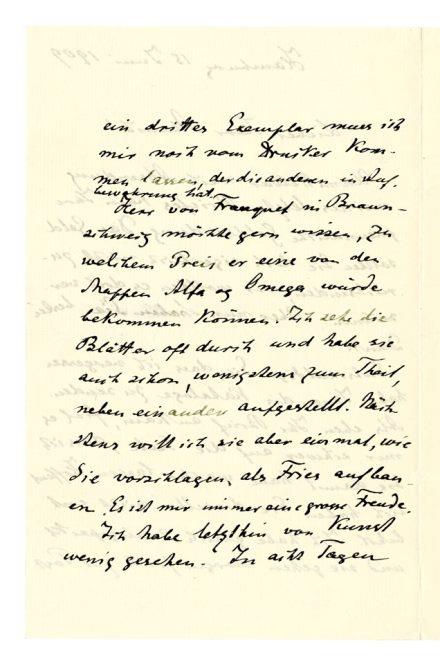 ein drittes Exemplar muss ich
mir noch vom Drucker kom-
men lassen, der die anderen in Auf-
bewahrung hat.
Herr von Franquet in Braun-
schweig möchte gern wissen, zu
welchem Preis er eine von den
Mappen Alfa og Omega würde
bekommen können. Ich sehe die
Blätter oft durch und habe sie
auch schon, wenigstens zum Theil,
neben einander aufgestellt. Näch
stens will ich sie aber einmal, wie
Sie vorschlagen, als Fries aufbau-
en. Es ist mir immer eine grosse Freude.
Ich habe letzthin von Kunst
wenig gesehen. In acht Tagen